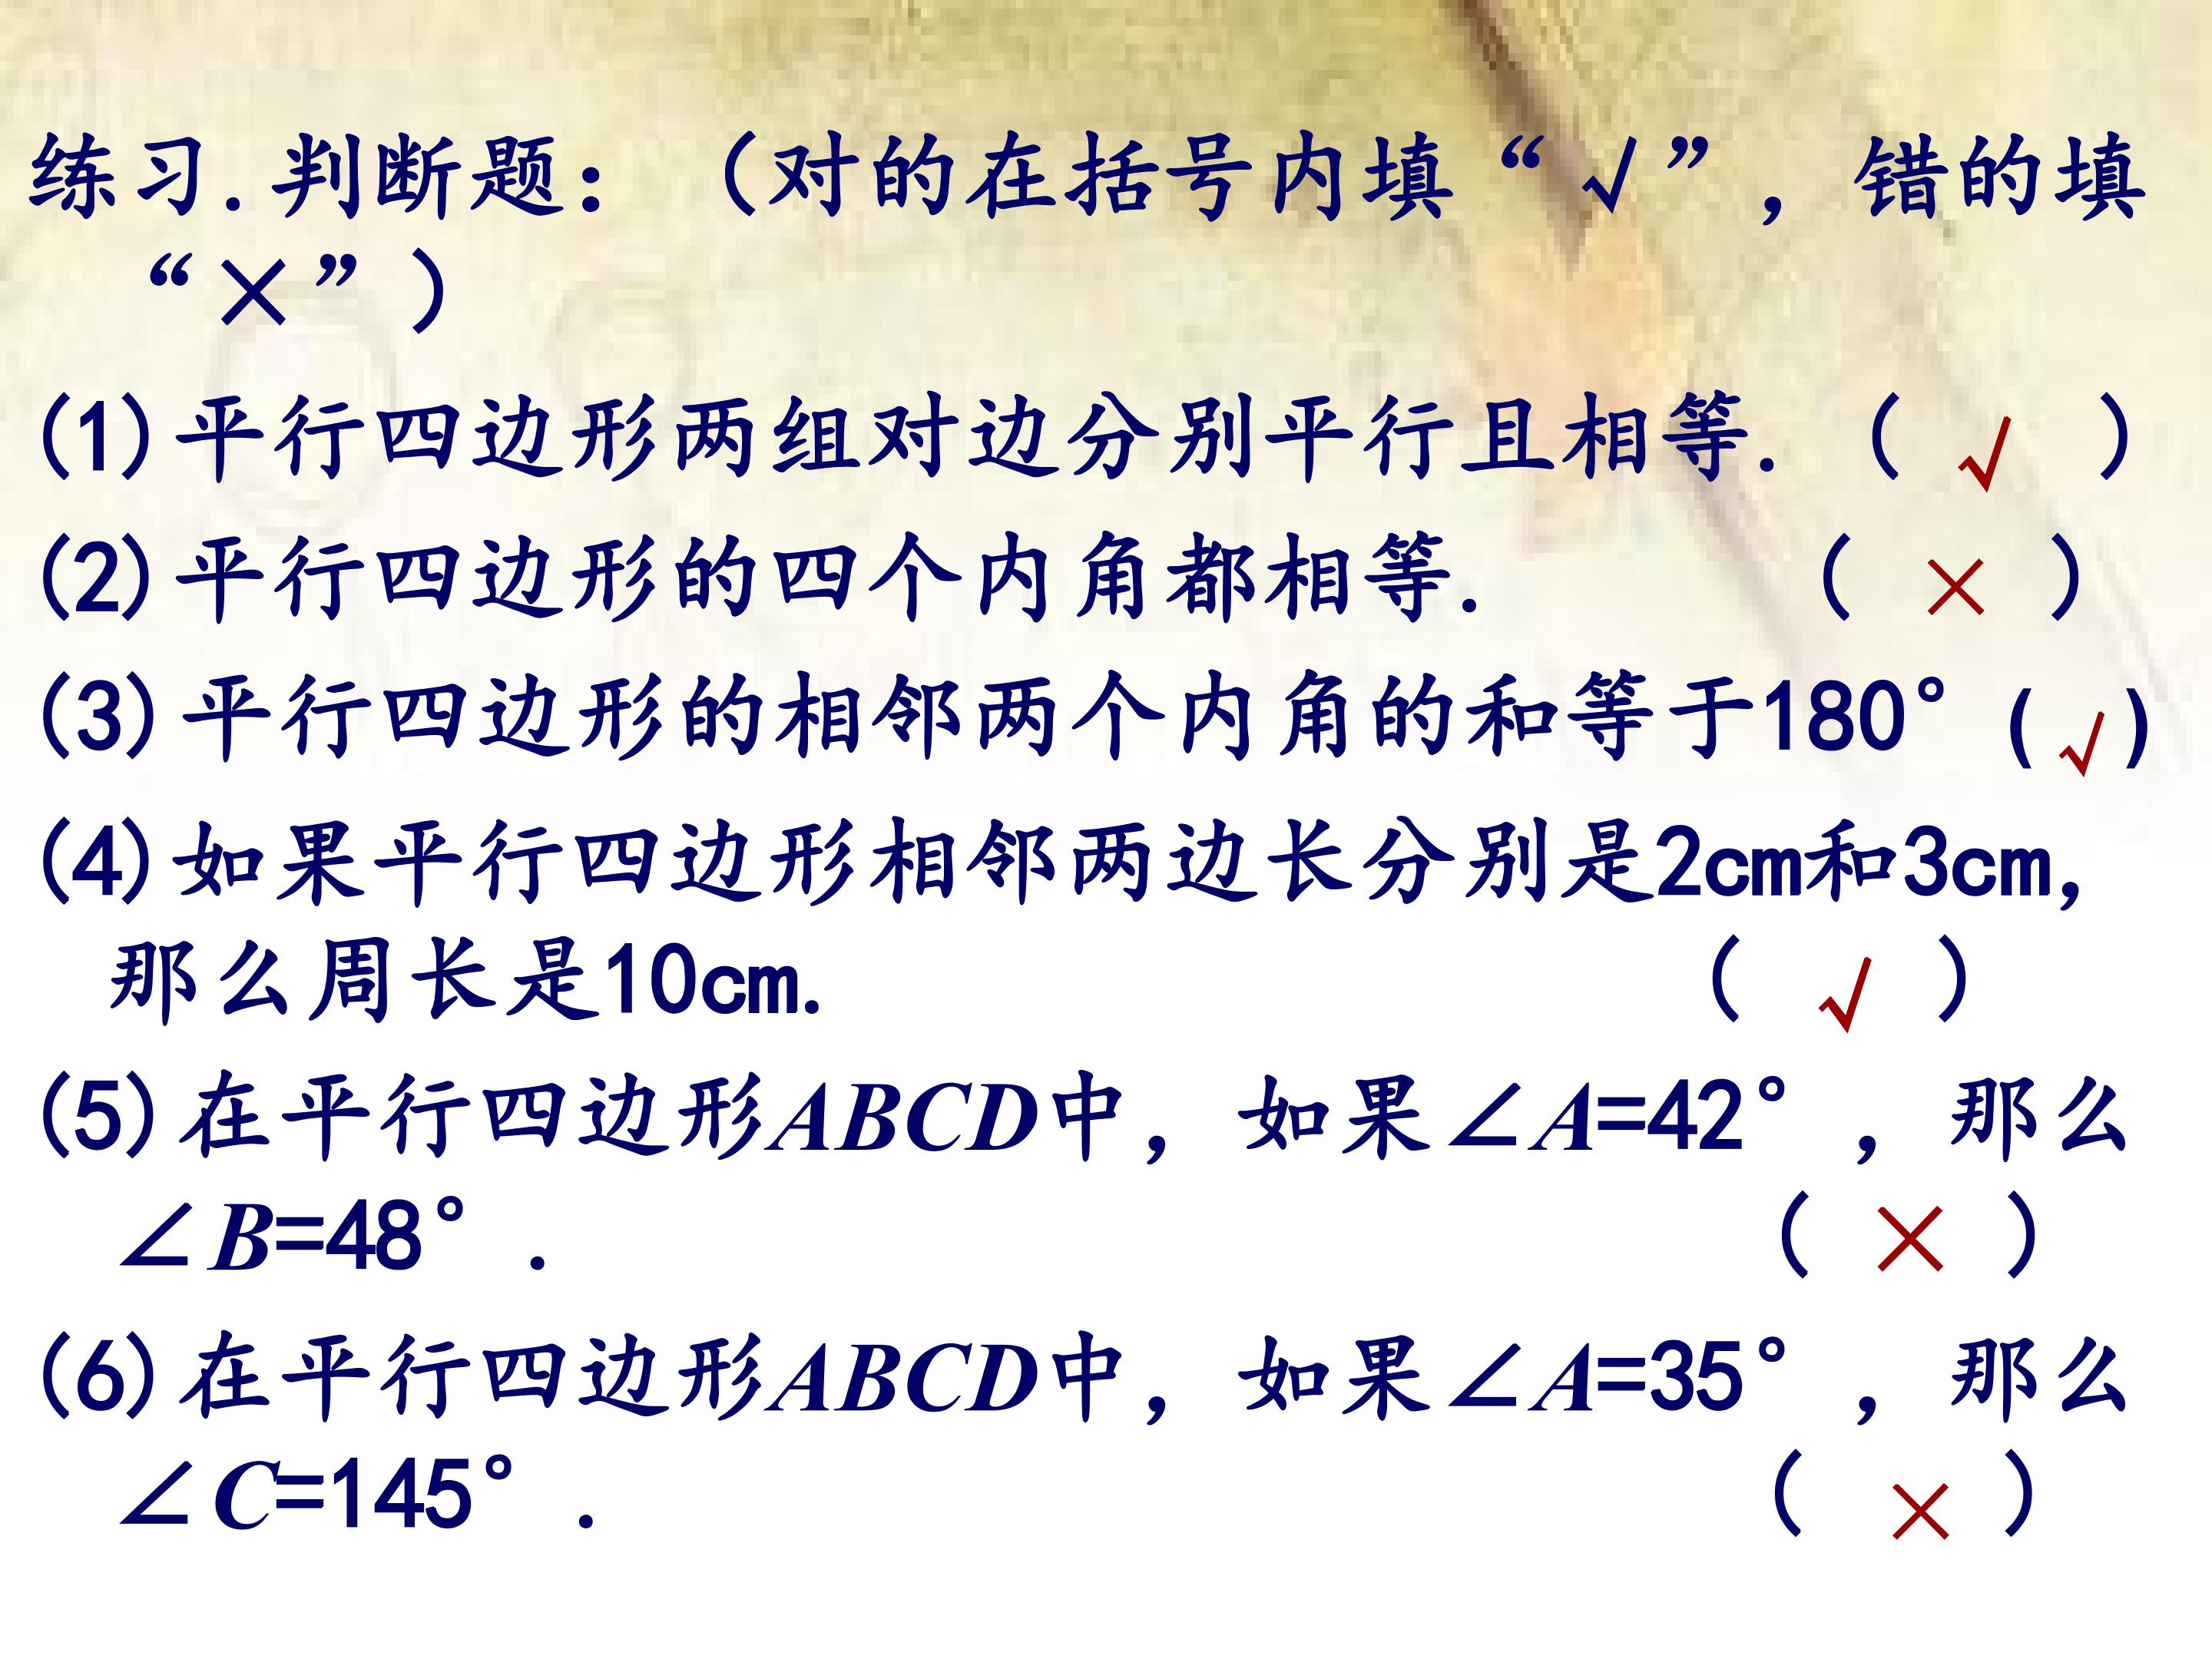 练习.判断题：（对的在括号内填“√”，错的填
“×”）
(1)平行四边形两组对边分别平行且相等.（ √ ）
(2)平行四边形的四个内角都相等.（ × ）
(3)平行四边形的相邻两个内角的和等于180°(√)
(4)如果平行四边形相邻两边长分别是2cm和3cm,
那么周长是10cm.（ √ ）
(5)在平行四边形ABCD中，如果∠A=42°，那么
∠B=48°.（ × ）
(6)在平行四边形ABCD中，如果∠A=35°，那么
∠C=145°.（ × ）